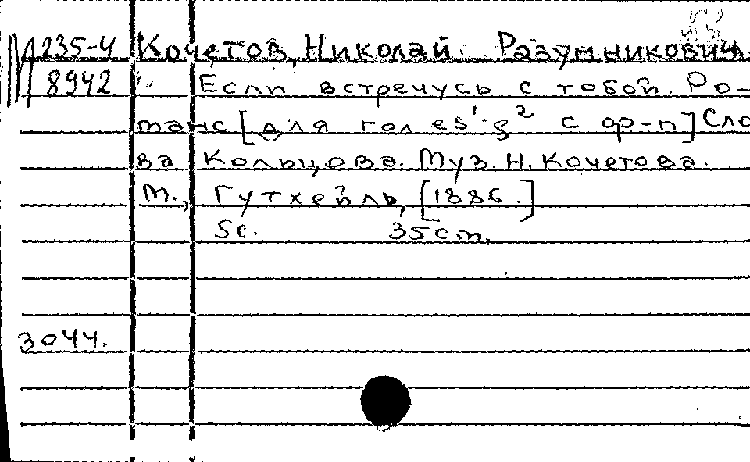 М 235-4 Кочетов, Николай Разумникович.
8942 Если встречусь с тобой. Ро-
манс [для гол es¹-g² с ф-п] Сло
ва Кольцова. Муз. Н. Кочетова.
М., Гутхейль, [1886.]
5с. 35cm.
3044.